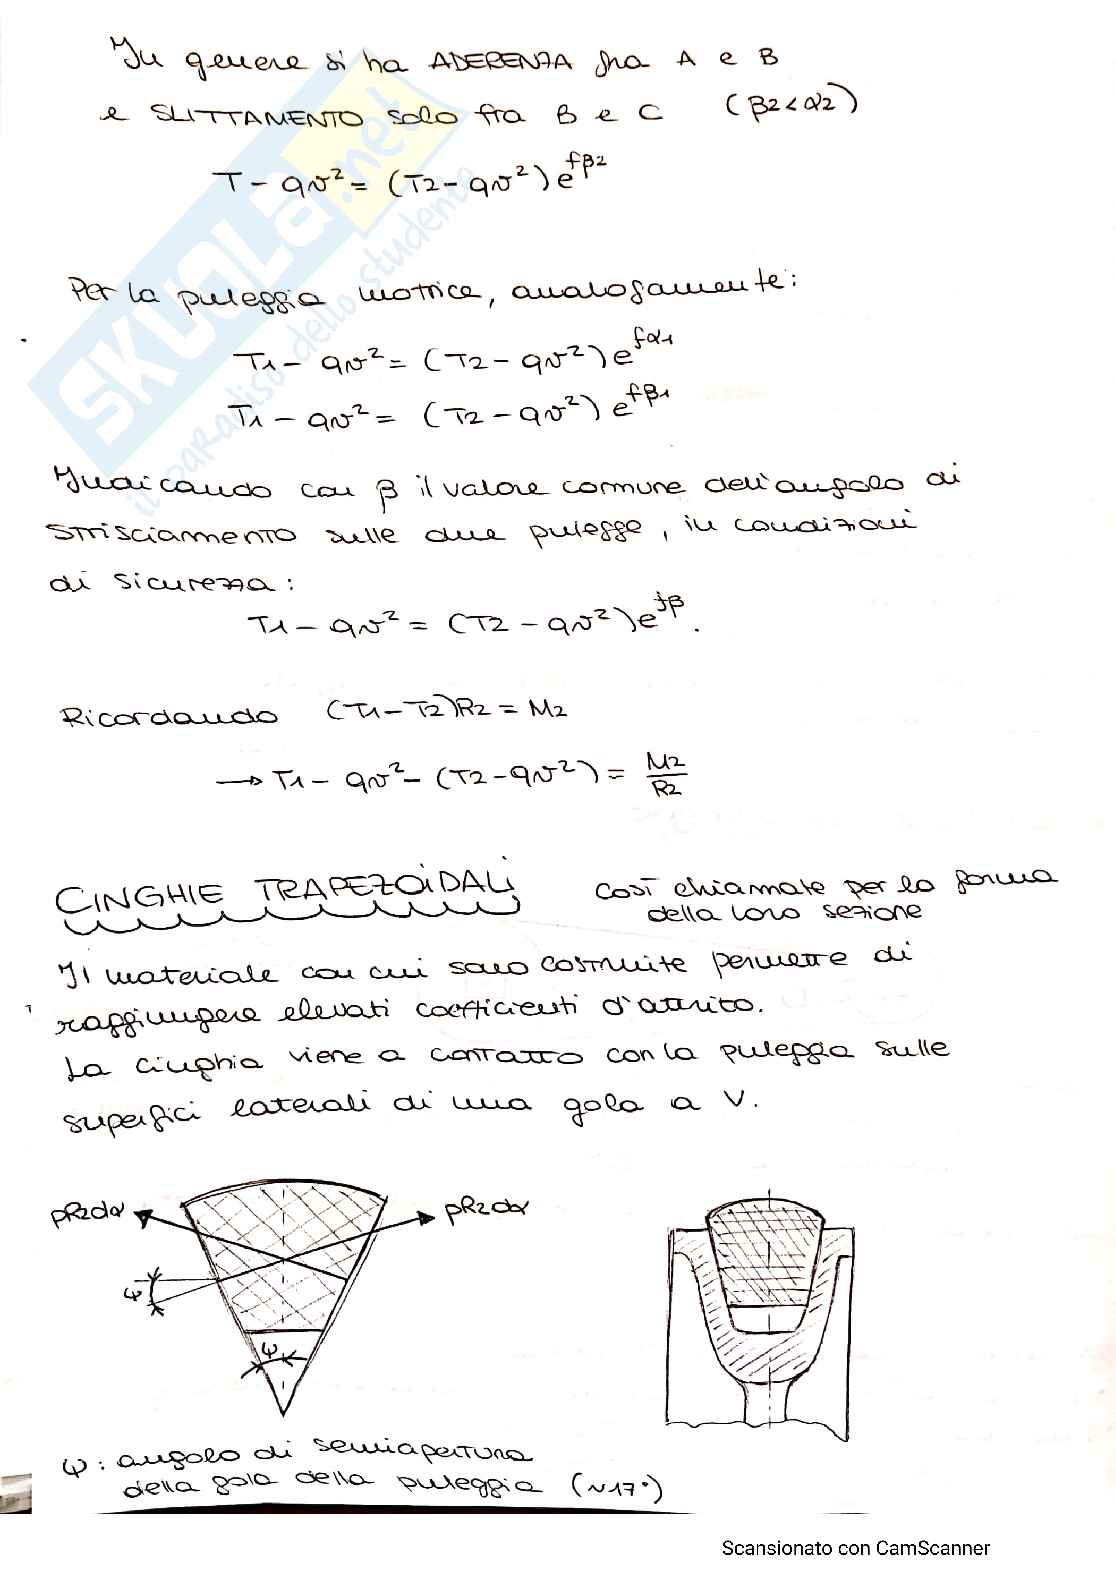 In genere si ha ADERENZA fra A e B
e SLITTAMENTO solo fra B e C (β2<α2)
T - qv² = (T2 - qv²) e^fβ2
Per la puleggia motrice, analogamente:
T1 - qv² = (T2 - qv²) e^fα1
T1 - qv² = (T2 - qv²) e^fβ1
Indicando con β il valore comune dell'angolo di
strisciamento sulle due pulegge, in condizioni
di sicurezza:
T1 - qv² = (T2 - qv²) e^fβ.
Ricordando (T1-T2)R2 = M2
→ T1 - qv² - (T2 - qv²) = M2/R2
CINGHIE TRAPEZOIDALI così chiamate per la forma
della loro sezione
Il materiale con cui sono costruite permette di
raggiungere elevati coefficienti d'attrito.
La cinghia viene a contatto con la puleggia sulle
superfici laterali di una gola a V.
pR2dα pR2dα
ψ
ψ
ψ: angolo di semiapertura
della gola della puleggia (~17°)
SKUOLA.net
il paradiso dello studente
Scansionato con CamScanner